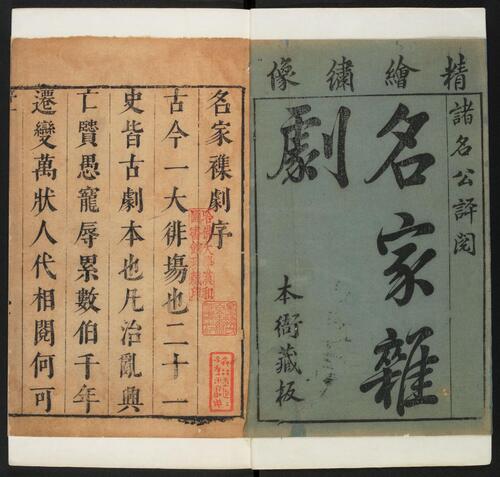 精繪繡像
諸名公評閱
名家雜
劇
本衙藏板
名家襍劇序
古今一大徘塲也二十一
史皆古劇本也凡治亂興
亡賢愚寵辱累數伯千年
遷變萬狀人代相閱何可